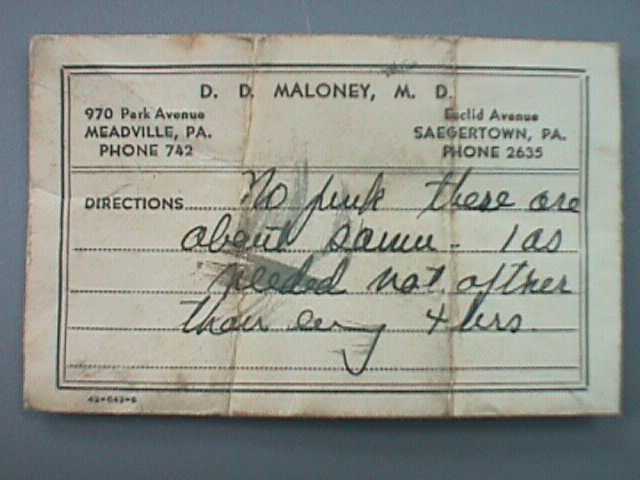 D. D. MALONEY, M. D.
970 Park Avenue
MEADVILLE, PA.
PHONE 742
Euclid Avenue
SAEGERTOWN, PA.
PHONE 2635
DIRECTIONS No pink these are
about same - 1 as
needed not ofther
than every 4 hrs.
42-642-6